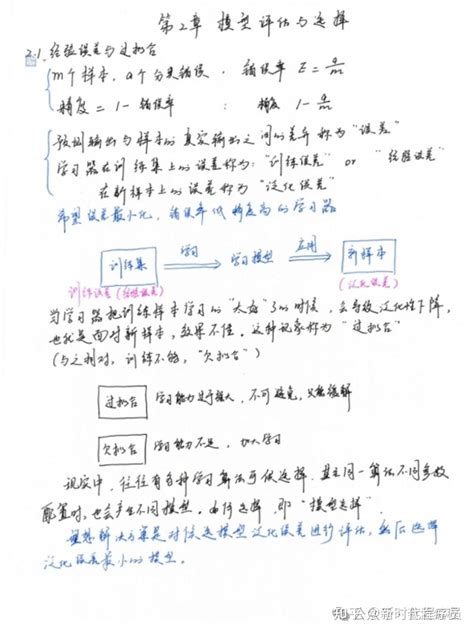 第2章 模型评估与选择
2.1. 经验误差与过拟合
m个样本, a个分类错误, 错误率 E = a/m
精度 = 1 - 错误率 : 精度 1 - a/m
预测输出与样本的真实输出之间的差异称为“误差”
学习器在训练集上的误差称为:“训练误差” or “经验误差”
在新样本上的误差称为“泛化误差”
希望误差最小化, 错误率低精度高的学习器
训练集 学习 学习模型 应用 新样本
训练误差(经验误差) (泛化误差)
当学习器把训练样本学习的“太好”了的时候, 会导致泛化性下降,
也就是面对新样本, 效果不佳. 这种现象称为“过拟合”
(与之相对, 训练不够, “欠拟合”)
过拟合 学习能力过于强大, 不可避免, 只能缓解
欠拟合 学习能力不足, 加大学习
现实中, 往往有多种学习算法可供选择, 甚至同一算法不同参数
配置时, 也会产生不同模型. 如何选择, 即“模型选择”.
理想解决方案是对候选模型泛化误差进行评估, 然后选择
泛化误差最小的模型.